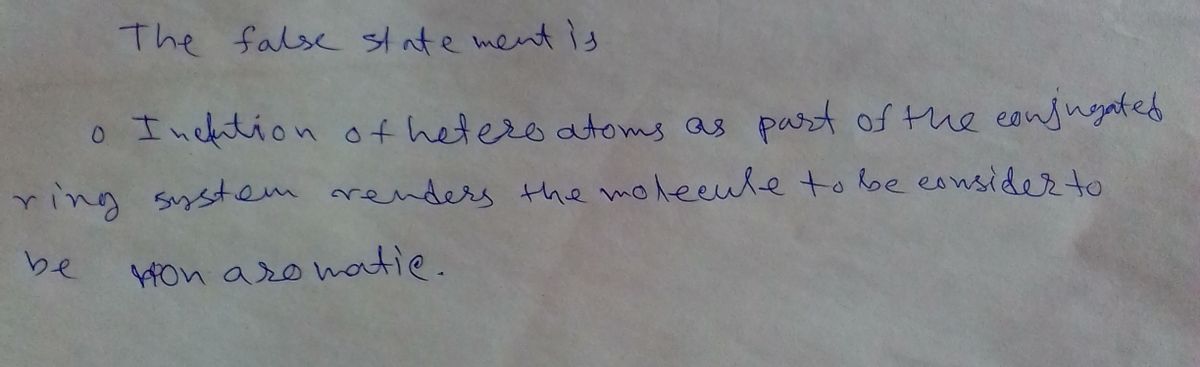 The false statement is
o Inclution of heteroatoms as part of the conjugated
ring system renders the moleeule to be consider to
be non aromatic.